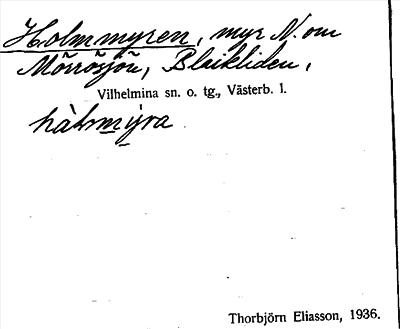 Holmmyren, myr N. om
Mörrösjön, Blaikliden,
Vilhelmina sn. o. tg., Västerb. l.
hàlmýra
Thorbjörn Eliasson, 1936.